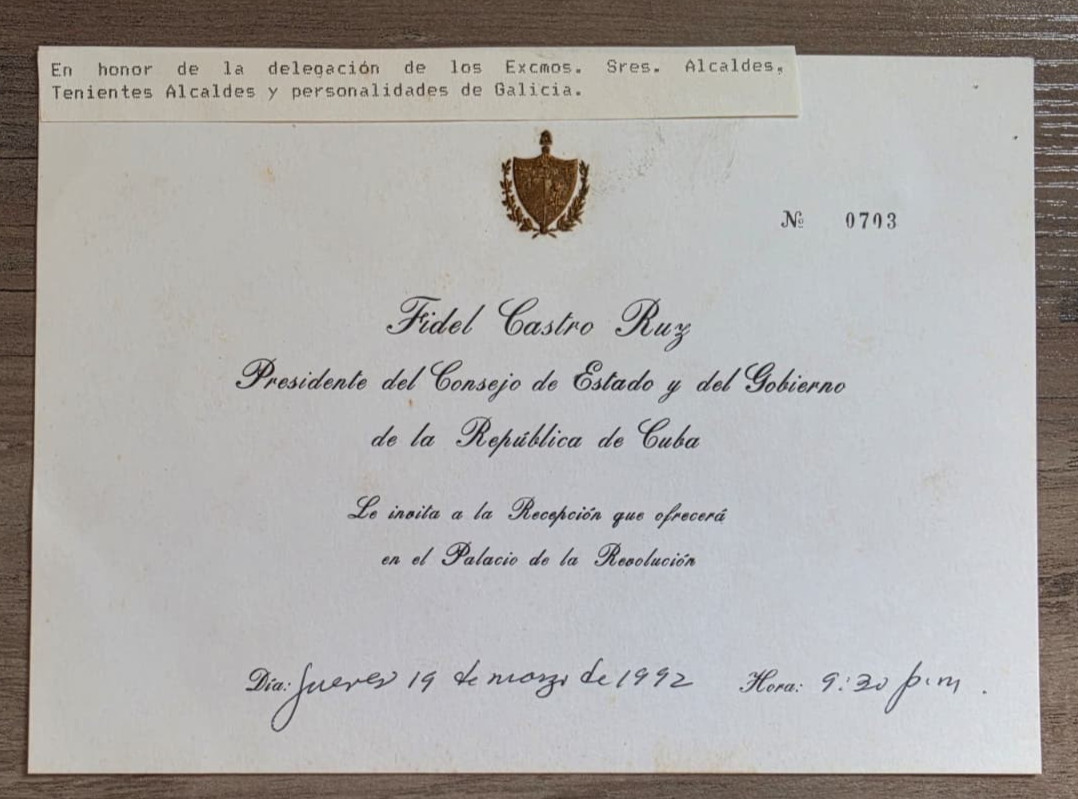 En honor de la delegación de los Excmos. Sres. Alcaldes,
Tenientes Alcaldes y personalidades de Galicia.
Nº 0703
Fidel Castro Ruz
Presidente del Consejo de Estado y del Gobierno
de la República de Cuba
Le invita a la Recepción que ofrecerá
en el Palacio de la Revolución
Día: Jueves 19 de marzo de 1992 Hora: 9:30 p.m.